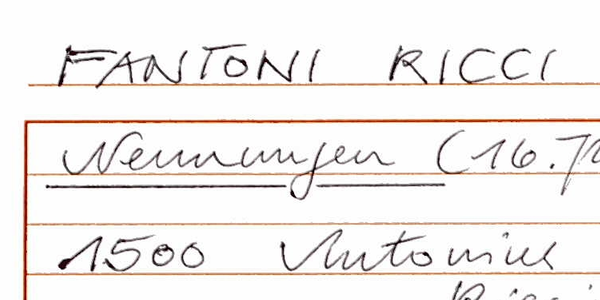 FANTONI RICCI
Nennungen (16.
1500 Antonius